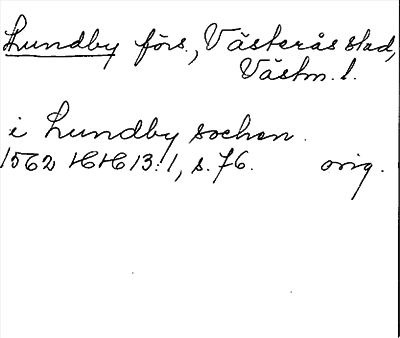 Lundby förs., Västerås stad,
Västm. l.
i Lundby sochen.
1562 HH 13:1, s. 76. orig.